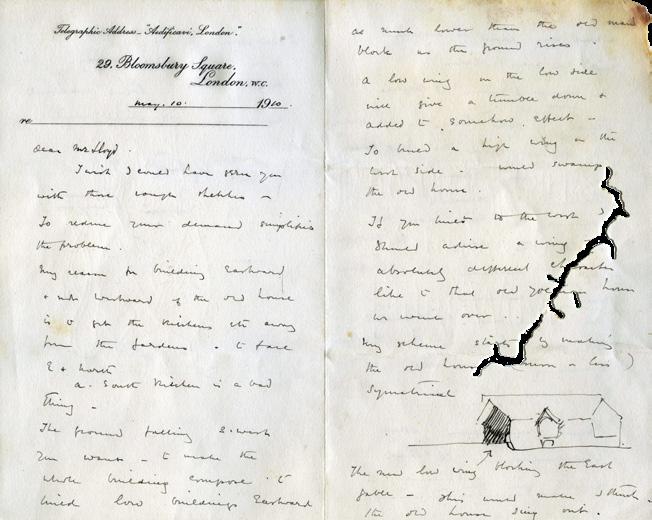 Telegraphic Address - "Aedificavi, London."
29, Bloomsbury Square,
London, W.C.
May. 10. 1910.
re
Dear Mr Lloyd.
I wish I could have seen you
with these rough sketches -
To reduce your demand simplifies
the problem.
My reason for building Eastward
& not westward of the old house
is to get the kitchens etc away
from the gardens - & to face
E & North
a. South Kitchen is a bad
thing -
The ground falling S. west
you want - to make the
whole building compose - to
build low buildings Eastward
as much lower than the old main
block as the ground rises.
A low wing on the low side
will give a tumble down &
added to, somehow, effect -
To build a high wing on the
west side - would swamp
the old house.
If you built to the west I
should advise a wing
absolutely different character
like to that old house
we went over ...
My scheme starts by making
the old house (more or less)
symmetrical
The new low wing blocking the East
gable - this would make
the old house sing out.